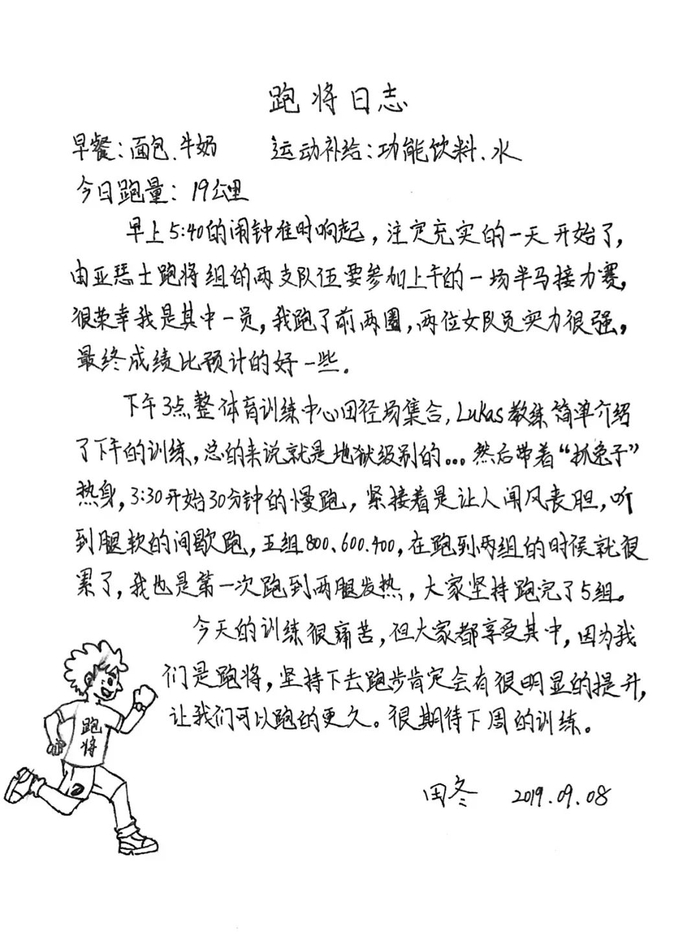 跑将日志
早餐：面包、牛奶　　运动补给：功能饮料、水
今日跑量：19公里
早上5:40的闹钟准时响起，注定充实的一天开始了，
由亚瑟士跑将组的两支队伍要参加上午的一场半马接力赛，
很荣幸我是其中一员，我跑了前两圈，两位女队员实力很强，
最终成绩比预计的好一些。
下午3点整体育训练中心田径场集合，Lukas教练简单介绍
了下午的训练，总的来说就是地狱级别的...然后带着“抓兔子”
热身，3:30开始30分钟的慢跑，紧接着是让人闻风丧胆，听
到腿软的间歇跑，五组800、600、400，在跑到两组的时候就很
累了，我也是第一次跑到两腿发热，大家坚持跑完了5组。
今天的训练很痛苦，但大家都享受其中，因为我
们是跑将，坚持下去跑步肯定会有很明显的提升，
让我们可以跑的更久。很期待下周的训练。
跑
将
田冬　2019.09.08